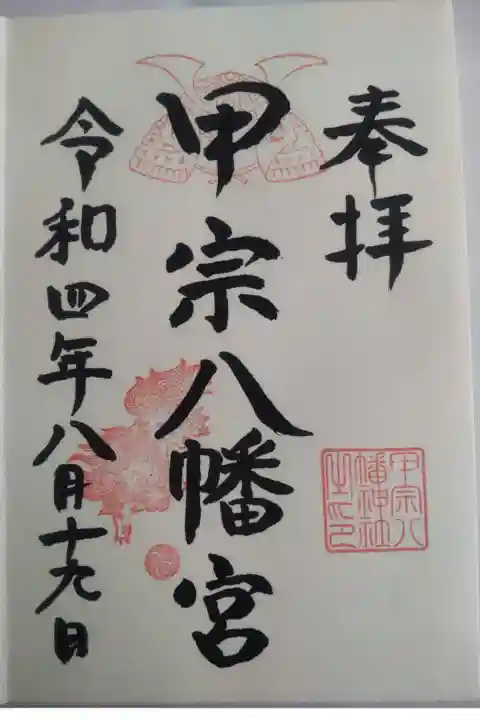 奉拝
甲宗八幡宮
甲宗八
幡神社
之印
令和四年八月十九日